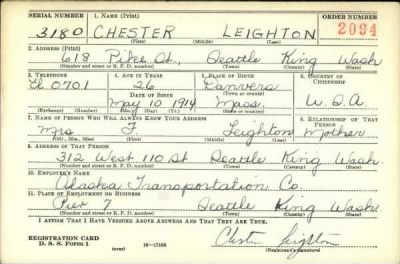 SERIAL NUMBER 1. NAME (Print) ORDER NUMBER
3180 CHESTER LEIGHTON 2094
(First) (Middle) (Last)
2. ADDRESS (Print)
618 Pike St., Seattle King Wash
(Number and street or R. F. D. number) (Town) (County) (State)
3. TELEPHONE 4. AGE IN YEARS 5. PLACE OF BIRTH 6. COUNTRY OF CITIZENSHIP
El 0701 26 Danvers
DATE OF BIRTH (Town or county)
May 10 1914 Mass. U.S.A.
(Exchange) (Number) (Mo.) (Day) (Yr.) (State or country)
7. NAME OF PERSON WHO WILL ALWAYS KNOW YOUR ADDRESS 8. RELATIONSHIP OF THAT PERSON
Mrs F. Leighton Mother
(Mr., Mrs., Miss) (First) (Middle) (Last)
9. ADDRESS OF THAT PERSON
312 West 110 St Seattle King Wash
(Number and street or R. F. D. number) (Town) (County) (State)
10. EMPLOYER'S NAME
Alaska Transportation Co.
11. PLACE OF EMPLOYMENT OR BUSINESS
Pier 7 Seattle King Wash
(Number and street or R. F. D. number) (Town) (County) (State)
I AFFIRM THAT I HAVE VERIFIED ABOVE ANSWERS AND THAT THEY ARE TRUE.
REGISTRATION CARD
D. S. S. Form 1 (over) 16—17105 Chester Leighton
(Registrant's signature)